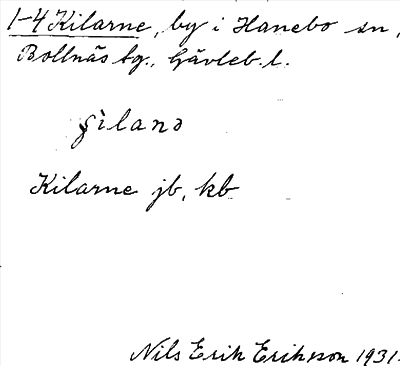 1-4 Kilarne, by i Hanebo sn,
Bollnäs tg., Gävleb. l.
Kilarne jb, kb
Nils Erik Eriksson 1931.